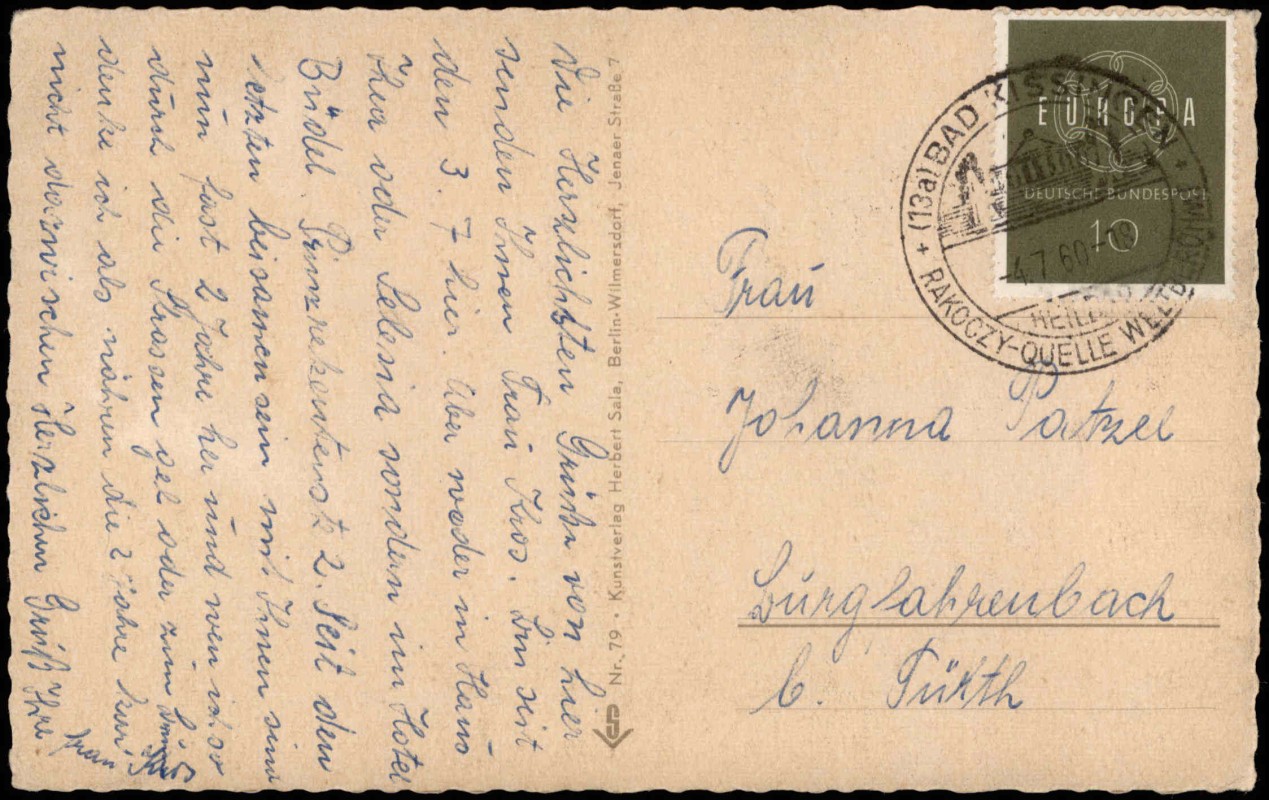 Die Herzlichsten Grüße von hier
senden Ihnen Frau Kros. Bin seit
den 3. 7 hier. Aber weder in Haus
Hea oder Selesia sondern im Hotel
Büdel Prinzrekentenst 2. Seit den
letzten beisamensein mit Ihnen sind
nun fast 2 Jahre her und wen ich so
durch die Strassen geh oder zum
denke ich als wären die 2 Jahre
nicht dazwischen Herzlichen Gruß Ihre
Frau Kros
Nr. 79 • Kunstverlag Herbert Sala, Berlin-Wilmersdorf, Jenaer Straße 7
EUROPA
DEUTSCHE BUNDESPOST
10
+ (13a) BAD KISSINGEN +
-4.7.60-18
HEILBAD
RAKOCZY-QUELLE WELTBERÜHMT
Frau
Johanna Patzel
Burgfahrenbach
b. Fürth